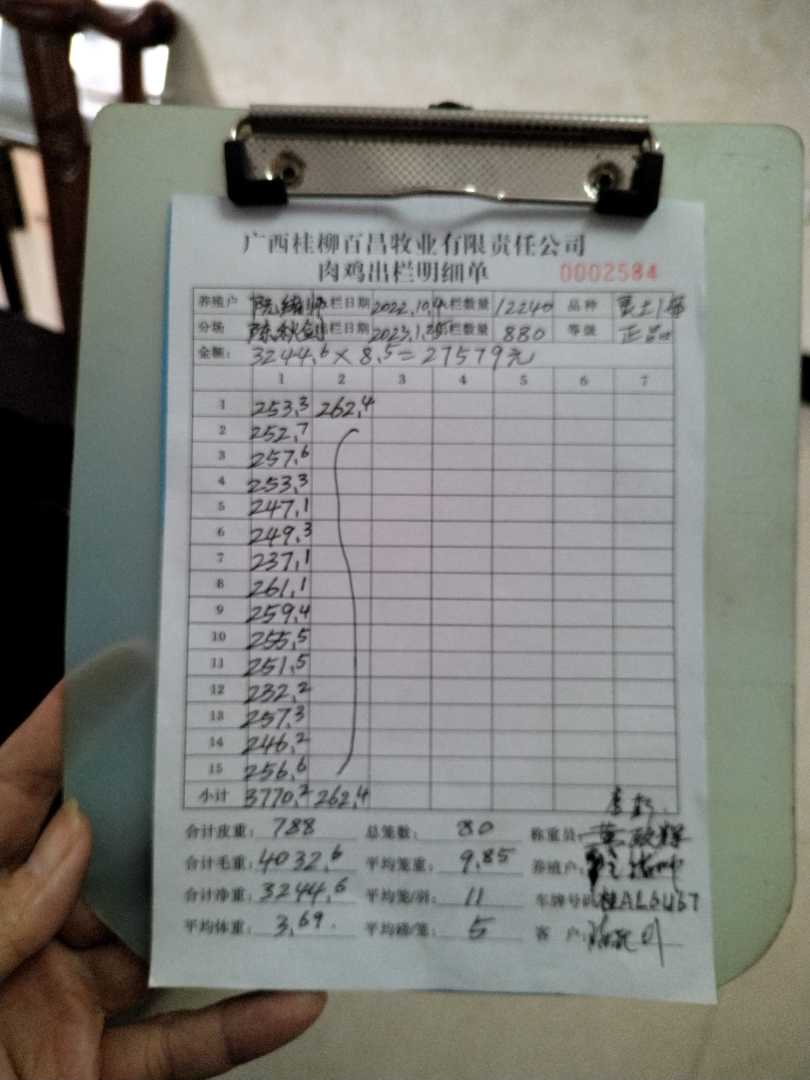 广西桂柳百昌牧业有限责任公司
肉鸡出栏明细单 0002584
养殖户 栏日期 2022.10.4 栏数量 12240 品种
分场 陈秋剑 栏日期 2023.1. 栏数量 880 等级 正品
金额: 3244.6×8.5=27579元
1 2 3 4 5 6 7
1 253.3 262.4
2 252.7
3 257.6
4 253.3
5 247.1
6 249.3
7 237.1
8 261.1
9 259.4
10 255.5
11 251.5
12 232.2
13 257.3
14 246.2
15 256.6
小计 3770.2 262.4
合计皮重: 788 总笼数: 80 称重员:
合计毛重: 4032.6 平均笼重: 9.85 养殖户:
合计净重: 3244.6 平均笼/羽: 11 车牌号码:
平均体重: 3.69. 平均磅/笼: 5 客户: